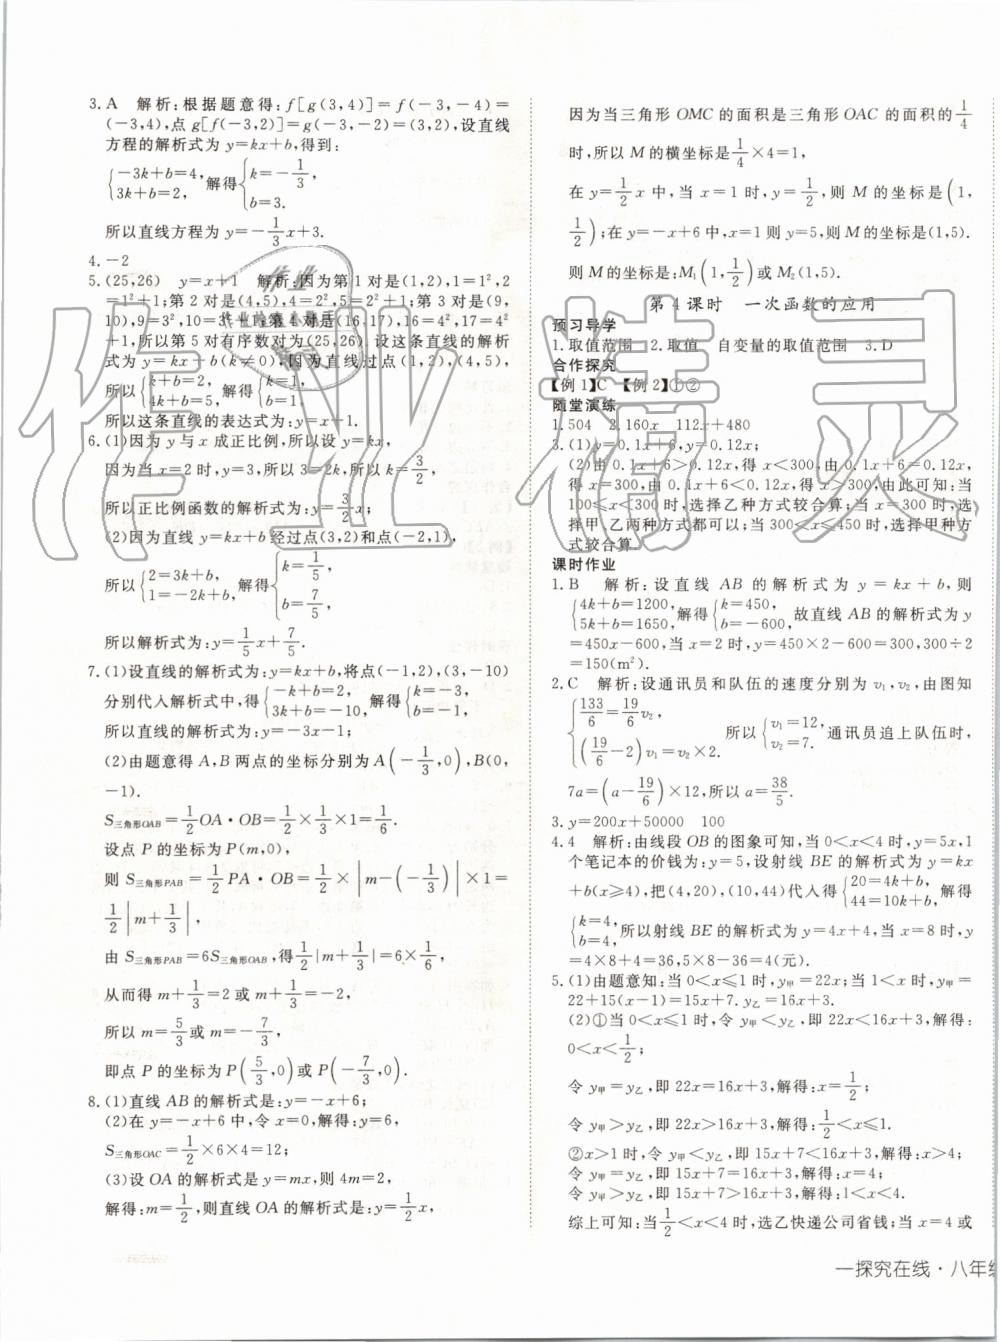 3. A　解析:根据题意得:f[g(3,4)]=f(-3,-4)=
(-3,4),点 g[f(-3,2)]=g(-3,-2)=(3,2),设直线
方程的解析式为 y=kx+b,得到:
{-3k+b=4, 3k+b=2, 解得{k=-1/3, b=3.
所以直线方程为 y=-1/3x+3.
4. -2
5. (25,26)　y=x+1　解析:因为第 1 对是(1,2),1=1²,
2=1²+1;第 2 对是(4,5),4=2²,5=2²+1;第 3 对是(9,
10),9=3²,10=3²+1;第 4 对是(16,17),16=4²,17=4²+1.
所以第 5 对有序数对为(25,26).设这条直线的解析
式为 y=kx+b(k≠0),因为直线过点(1,2),(4,5),
所以{k+b=2, 4k+b=5, 解得{k=1, b=1.
所以这条直线的表达式为:y=x+1.
6. (1)因为 y 与 x 成正比例,所以设 y=kx,
因为当 x=2 时,y=3,所以 3=2k,所以 k=3/2,
所以正比例函数的解析式为:y=3/2x;
(2)因为直线 y=kx+b 经过点(3,2)和点(-2,1),
所以{2=3k+b, 1=-2k+b, 解得{k=1/5, b=7/5,
所以解析式为:y=1/5x+7/5.
7. (1)设直线的解析式为:y=kx+b,将点(-1,2),(3,-10)
分别代入解析式中,得{-k+b=2, 3k+b=-10, 解得{k=-3, b=-1,
所以直线的解析式为:y=-3x-1;
(2)由题意得 A,B 两点的坐标分别为 A(-1/3,0),B(0,
-1).
S三角形OAB=1/2OA·OB=1/2×1/3×1=1/6.
设点 P 的坐标为 P(m,0),
则 S三角形PAB=1/2PA·OB=1/2×|m-(-1/3)|×1=
1/2|m+1/3|,
由 S三角形PAB=6S三角形OAB,得1/2|m+1/3|=6×1/6,
从而得 m+1/3=2 或 m+1/3=-2,
所以 m=5/3或 m=-7/3,
即点 P 的坐标为 P(5/3,0)或 P(-7/3,0).
8. (1)直线 AB 的解析式是:y=-x+6;
(2)在 y=-x+6 中,令 x=0,解得:y=6,
S三角形OAC=1/2×6×4=12;
(3)设 OA 的解析式是 y=mx,则 4m=2,
解得:m=1/2,则直线 OA 的解析式是:y=1/2x,
因为当三角形 OMC 的面积是三角形 OAC 的面积的1/4
时,所以 M 的横坐标是1/4×4=1,
在 y=1/2x 中,当 x=1 时,y=1/2,则 M 的坐标是(1,
1/2);在 y=-x+6 中,x=1 则 y=5,则 M 的坐标是(1,5).
则 M 的坐标是:M₁(1,1/2)或 M₂(1,5).
第 4 课时　一次函数的应用
预习导学
1. 取值范围　2. 取值　自变量的取值范围　3. D
合作探究
【例 1】C　【例 2】①②
随堂演练
1. 504　2. 160x　112x+480
3. (1)y=0.1x+6,y=0.12x;
(2)由 0.1x+6>0.12x,得 x<300,由 0.1x+6=0.12x,
得 x=300,由 0.1x+6<0.12x,得 x>300,由此可知:当
100≤x<300 时,选择乙种方式较合算;当 x=300 时,选
择甲、乙两种方式都可以;当 300<x≤450 时,选择甲种方
式较合算.
课时作业
1. B　解析:设直线 AB 的解析式为 y=kx+b,则
{4k+b=1200, 5k+b=1650, 解得{k=450, b=-600, 故直线 AB 的解析式为 y
=450x-600,当 x=2 时,y=450×2-600=300,300÷2
=150(m²).
2. C　解析:设通讯员和队伍的速度分别为 v₁,v₂,由图知
{133/6=19/6v₂, (19/6-2)v₁=v₂×2. 所以{v₁=12, v₂=7. 通讯员追上队伍时,
7a=(a-19/6)×12,所以 a=38/5.
3. y=200x+50000　100
4. 4　解析:由线段 OB 的图象可知,当 0<x<4 时,y=5x,1
个笔记本的价钱为:y=5,设射线 BE 的解析式为 y=kx
+b(x≥4),把(4,20),(10,44)代入得{20=4k+b, 44=10k+b, 解得
{k=4, b=4, 所以射线 BE 的解析式为 y=4x+4,当 x=8 时,y
=4×8+4=36,5×8-36=4(元).
5. (1)由题意知:当 0<x≤1 时,y甲=22x;当 1<x 时,y甲=
22+15(x-1)=15x+7.y乙=16x+3.
(2)①当 0<x≤1 时,令 y甲<y乙,即 22x<16x+3,解得:
0<x<1/2;
令 y甲=y乙,即 22x=16x+3,解得:x=1/2;
令 y甲>y乙,即 22x>16x+3,解得:1/2<x≤1.
②x>1 时,令 y甲<y乙,即 15x+7<16x+3,解得:x>4;
令 y甲=y乙,即 15x+7=16x+3,解得:x=4;
令 y甲>y乙,即 15x+7>16x+3,解得:1<x<4.
综上可知:当1/2<x<4 时,选乙快递公司省钱;当 x=4 或
一探究在线·八年级
作业精灵